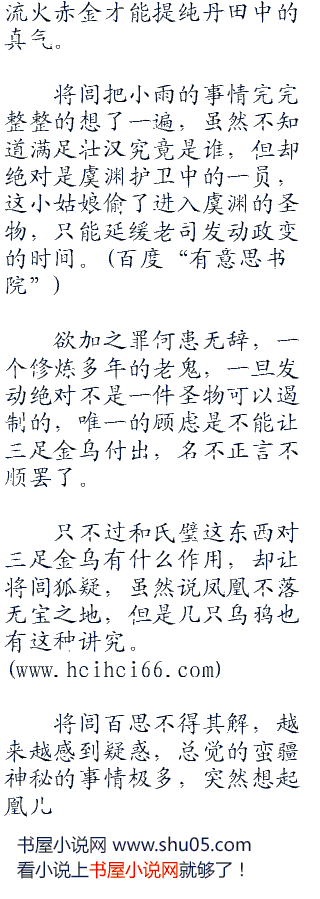 流火赤金才能提纯丹田中的
真气。
将闾把小雨的事情完完
整整的想了一遍，虽然不知
道满足壮汉究竟是谁，但却
绝对是虞渊护卫中的一员，
这小姑娘偷了进入虞渊的圣
物，只能延缓老司发动政变
的时间。(百度“有意思书
院”)
欲加之罪何患无辞，一
个修炼多年的老鬼，一旦发
动绝对不是一件圣物可以遏
制的，唯一的顾虑是不能让
三足金乌付出，名不正言不
顺罢了。
只不过和氏璧这东西对
三足金乌有什么作用，却让
将闾狐疑，虽然说凤凰不落
无宝之地，但是几只乌鸦也
有这种讲究。
(www.hcihci66.com)
将闾百思不得其解，越
来越感到疑惑，总觉的蛮疆
神秘的事情极多，突然想起
凰儿
书屋小说网 www.shu05.com
看小说上书屋小说网就够了！